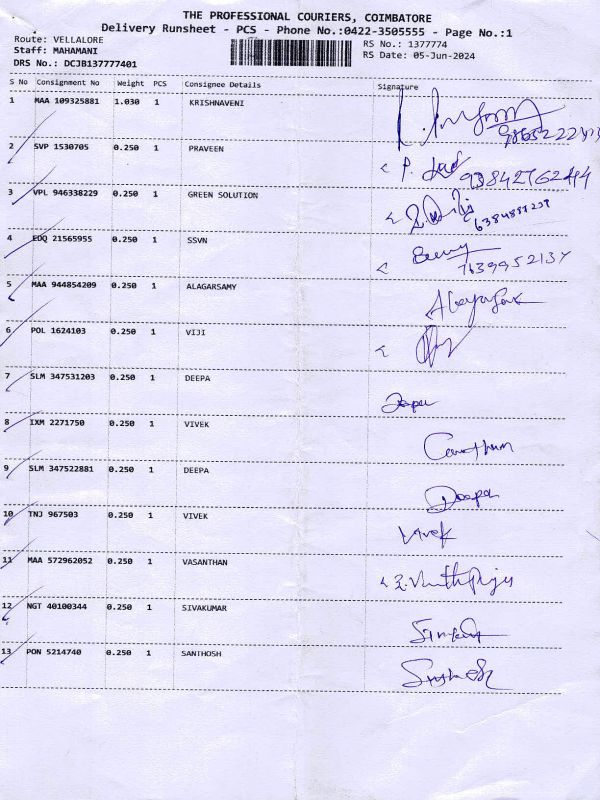 THE PROFESSIONAL COURIERS, COIMBATORE
Delivery Runsheet - PCS - Phone No.:0422-3505555 - Page No.:1
Route: VELLALORE RS No.: 1377774
Staff: MAHAMANI RS Date: 05-Jun-2024
DRS No.: DCJB137777401
S No Consignment No Weight PCS Consignee Details Signature
1 MAA 109325881 1.030 1 KRISHNAVENI
2 SVP 1530705 0.250 1 PRAVEEN
3 VPL 946338229 0.250 1 GREEN SOLUTION
4 EDQ 21565955 0.250 1 SSVN
5 MAA 944854209 0.250 1 ALAGARSAMY
6 POL 1624103 0.250 1 VIJI
7 SLM 347531203 0.250 1 DEEPA Deepa
8 IXM 2271750 0.250 1 VIVEK
9 SLM 347522881 0.250 1 DEEPA Deepa
10 TNJ 967503 0.250 1 VIVEK Vivek
11 MAA 572962052 0.250 1 VASANTHAN
12 NGT 40100344 0.250 1 SIVAKUMAR
13 PON 5214740 0.250 1 SANTHOSH